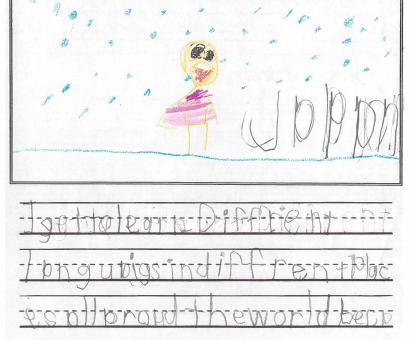 Jappan
I get to learn Diffrient
languigs in diffrent plac
es all around the world beca